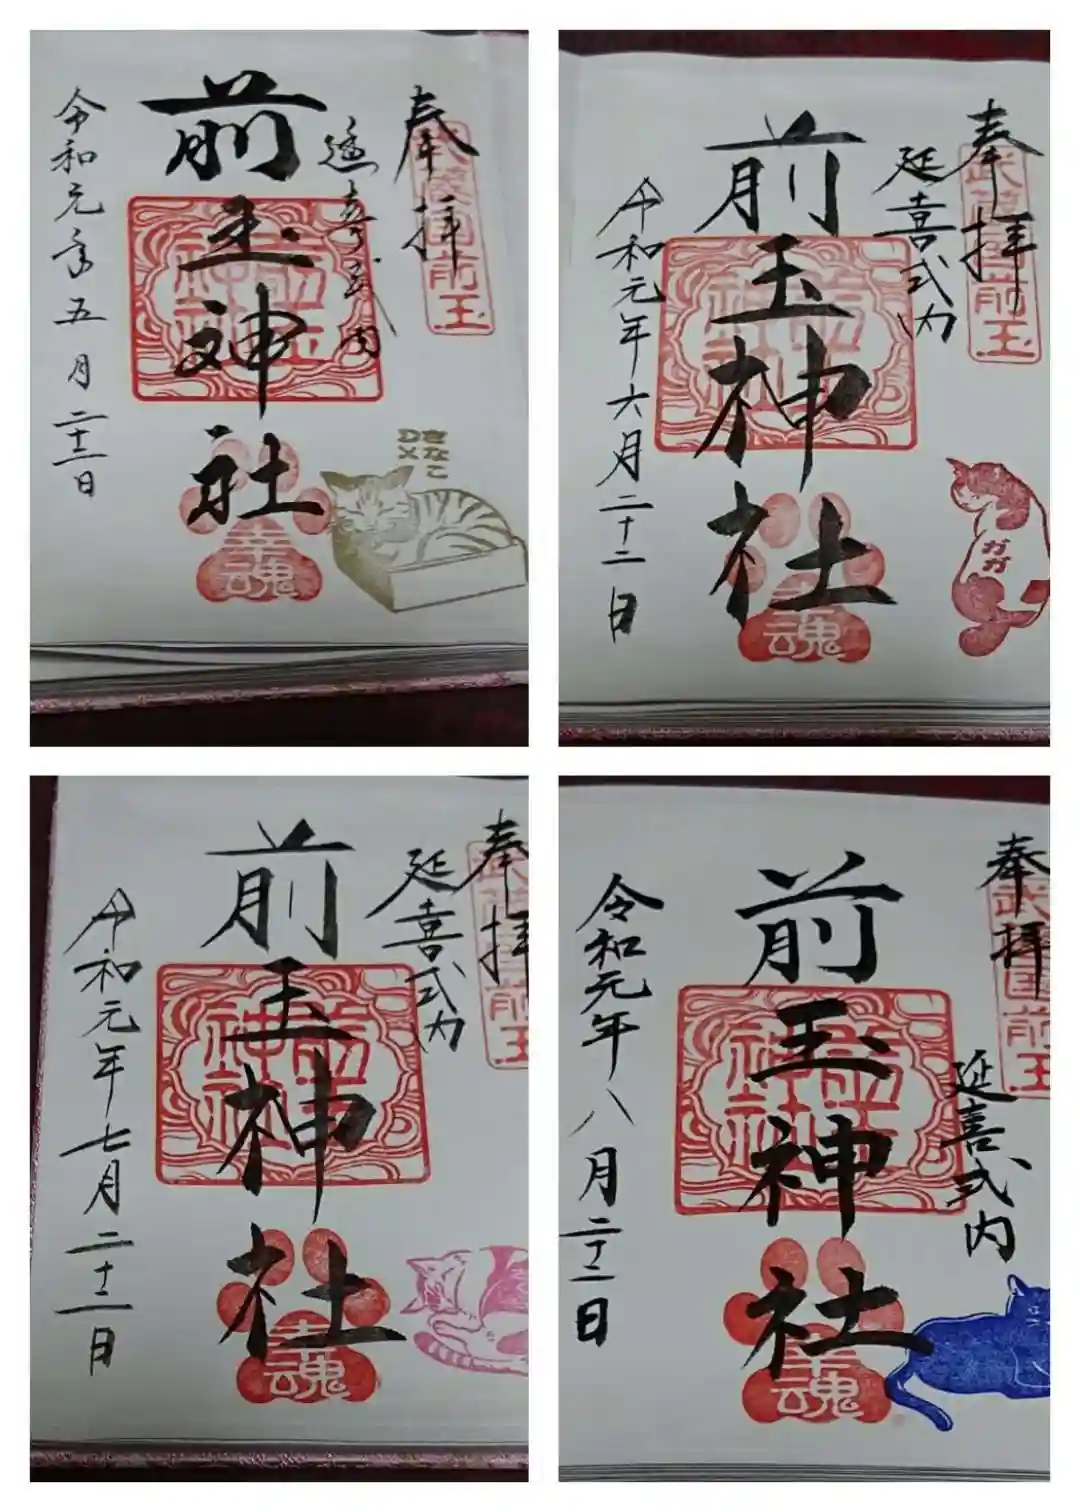 奉拝
武蔵国前玉
延喜式内
前玉神社
幸魂
きなこ
DX
令和元年五月二十二日
奉拝
武蔵国前玉
延喜式内
前玉神社
幸魂
ガガ
令和元年六月二十二日
奉拝
武蔵国前玉
延喜式内
前玉神社
幸魂
令和元年七月二十二日
奉拝
武蔵国前玉
延喜式内
前玉神社
幸魂
令和元年八月二十二日